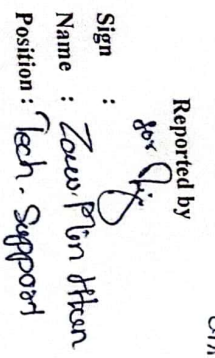 Reported by
for
Sign :
Name : Zaw Min Htun
Position : Tech. Support